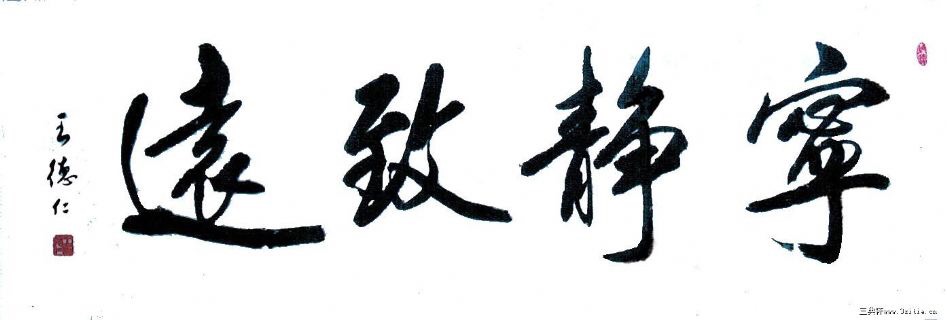 寧靜致遠
王德仁
www.3zitie.cn